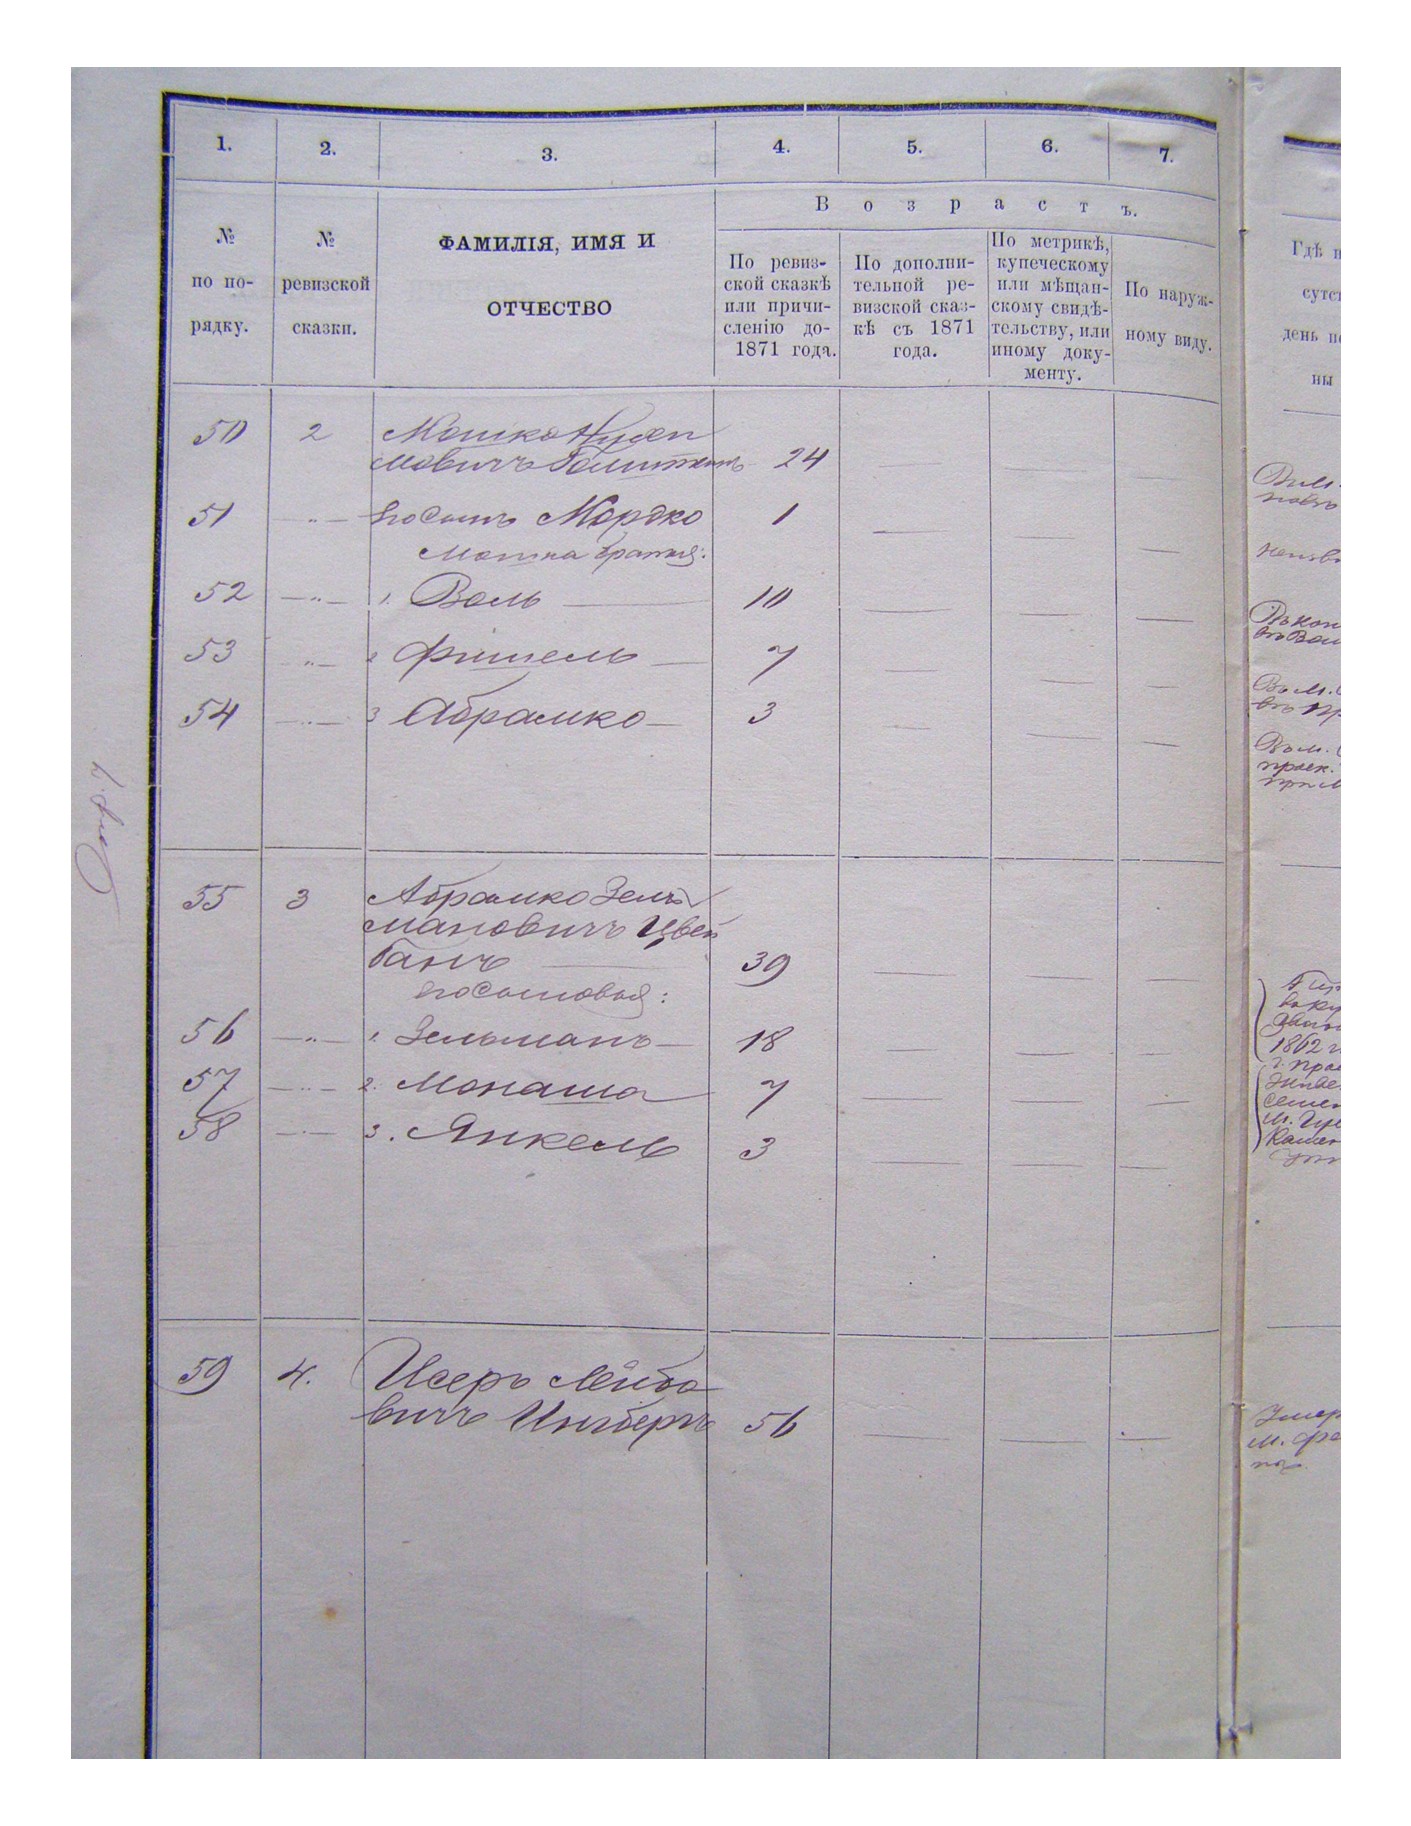 1. 2. 3. 4. 5. 6. 7.
В о з р а с т ъ.
№ по по- рядку.
№ ревизской сказки.
ФАМИЛІЯ, ИМЯ И
ОТЧЕСТВО
По ревиз-
ской сказкѣ
или причи-
сленію до-
1871 года.
По дополни-
тельной ре-
визской сказ-
кѣ съ 1871
года.
По метрикѣ,
купеческому
или мѣщан-
скому свидѣ-
тельству, или
иному доку-
менту.
По наруж-
ному виду.
Гдѣ
сутс
день
ны
50 2 Мошко
мовичъ 24
51 —„— его сынъ Мордко 1
Мошка братья:
52 —„— 1. Воль — 10
53 —„— 2 Фишель — 7
54 —„— 3 Абрамко — 3
55 3 Абрамко Зель
мановичъ Цвей
банъ — 39
его сыновья:
56 —„— 1. Зельманъ — 18
57 —„— 2. Монаша 7
58 —„— 3. Янкель 3
59 4. Исеръ Лейбо
вичъ Ингберъ 56
1862